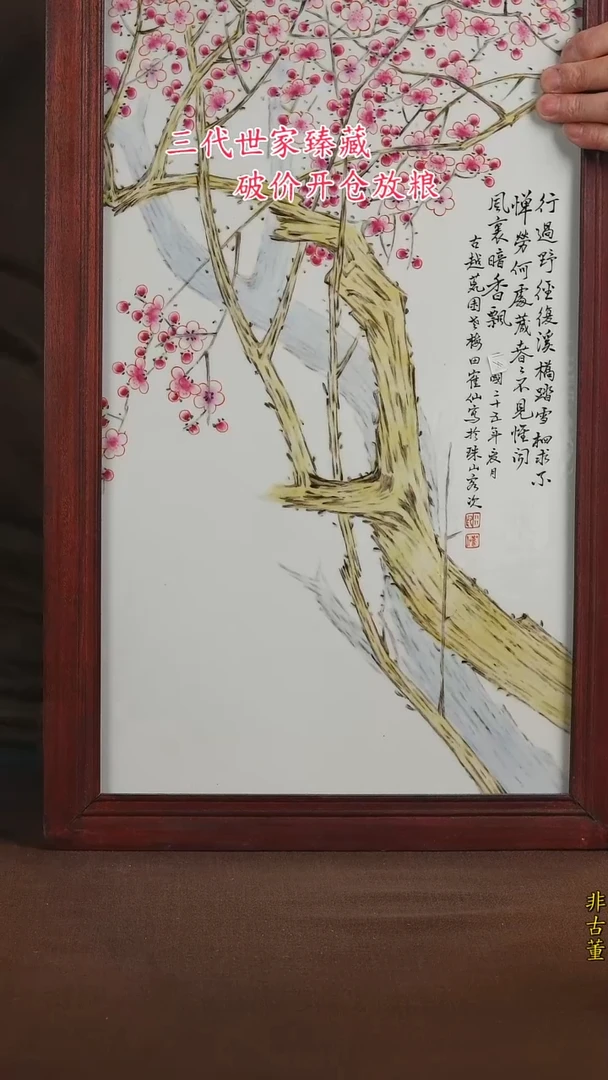 三代世家臻藏
破价开仓放粮
行過野徑復溪橋踏雪相求不
惮勞何處蔵春〻不見惟聞
風裏暗香飄
國二十五年夜月
古越 園 梅田崔仙寫於珠山客次
非古董